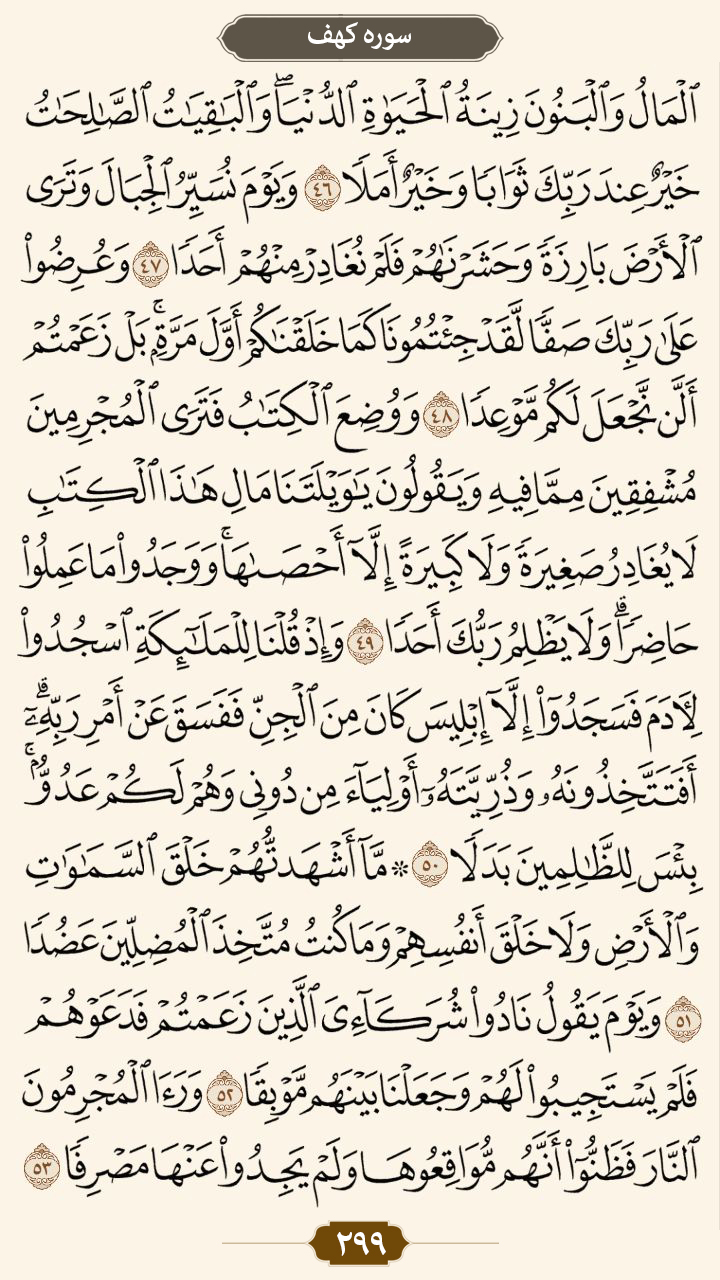 سوره کهف
ٱلۡمَالُ وَٱلۡبَنُونَ زِينَةُ ٱلۡحَيَوٰةِ ٱلدُّنۡيَاۖ وَٱلۡبَٰقِيَٰتُ ٱلصَّٰلِحَٰتُ
خَيۡرٌ عِندَ رَبِّكَ ثَوَابٗا وَخَيۡرٌ أَمَلٗا ٤٦ وَيَوۡمَ نُسَيِّرُ ٱلۡجِبَالَ وَتَرَى
ٱلۡأَرۡضَ بَارِزَةٗ وَحَشَرۡنَٰهُمۡ فَلَمۡ نُغَادِرۡ مِنۡهُمۡ أَحَدٗا ٤٧ وَعُرِضُواْ
عَلَىٰ رَبِّكَ صَفّٗا لَّقَدۡ جِئۡتُمُونَا كَمَا خَلَقۡنَٰكُمۡ أَوَّلَ مَرَّةِۭۚ بَلۡ زَعَمۡتُمۡ
أَلَّن نَّجۡعَلَ لَكُم مَّوۡعِدٗا ٤٨ وَوُضِعَ ٱلۡكِتَٰبُ فَتَرَى ٱلۡمُجۡرِمِينَ
مُشۡفِقِينَ مِمَّا فِيهِ وَيَقُولُونَ يَٰوَيۡلَتَنَا مَالِ هَٰذَا ٱلۡكِتَٰبِ
لَا يُغَادِرُ صَغِيرَةٗ وَلَا كَبِيرَةً إِلَّآ أَحۡصَىٰهَاۚ وَوَجَدُواْ مَا عَمِلُواْ
حَاضِرٗاۗ وَلَا يَظۡلِمُ رَبُّكَ أَحَدٗا ٤٩ وَإِذۡ قُلۡنَا لِلۡمَلَٰٓئِكَةِ ٱسۡجُدُواْ
لِأٓدَمَ فَسَجَدُوٓاْ إِلَّآ إِبۡلِيسَ كَانَ مِنَ ٱلۡجِنِّ فَفَسَقَ عَنۡ أَمۡرِ رَبِّهِۦٓۗ
أَفَتَتَّخِذُونَهُۥ وَذُرِّيَّتَهُۥٓ أَوۡلِيَآءَ مِن دُونِي وَهُمۡ لَكُمۡ عَدُوُّۢۚ
بِئۡسَ لِلظَّٰلِمِينَ بَدَلٗا ٥٠ ۞مَّآ أَشۡهَدتُّهُمۡ خَلۡقَ ٱلسَّمَٰوَٰتِ
وَٱلۡأَرۡضِ وَلَا خَلۡقَ أَنفُسِهِمۡ وَمَا كُنتُ مُتَّخِذَ ٱلۡمُضِلِّينَ عَضُدٗا
٥١ وَيَوۡمَ يَقُولُ نَادُواْ شُرَكَآءِيَ ٱلَّذِينَ زَعَمۡتُمۡ فَدَعَوۡهُمۡ
فَلَمۡ يَسۡتَجِيبُواْ لَهُمۡ وَجَعَلۡنَا بَيۡنَهُم مَّوۡبِقٗا ٥٢ وَرَءَا ٱلۡمُجۡرِمُونَ
ٱلنَّارَ فَظَنُّوٓاْ أَنَّهُم مُّوَاقِعُوهَا وَلَمۡ يَجِدُواْ عَنۡهَا مَصۡرِفٗا ٥٣
٢٩٩